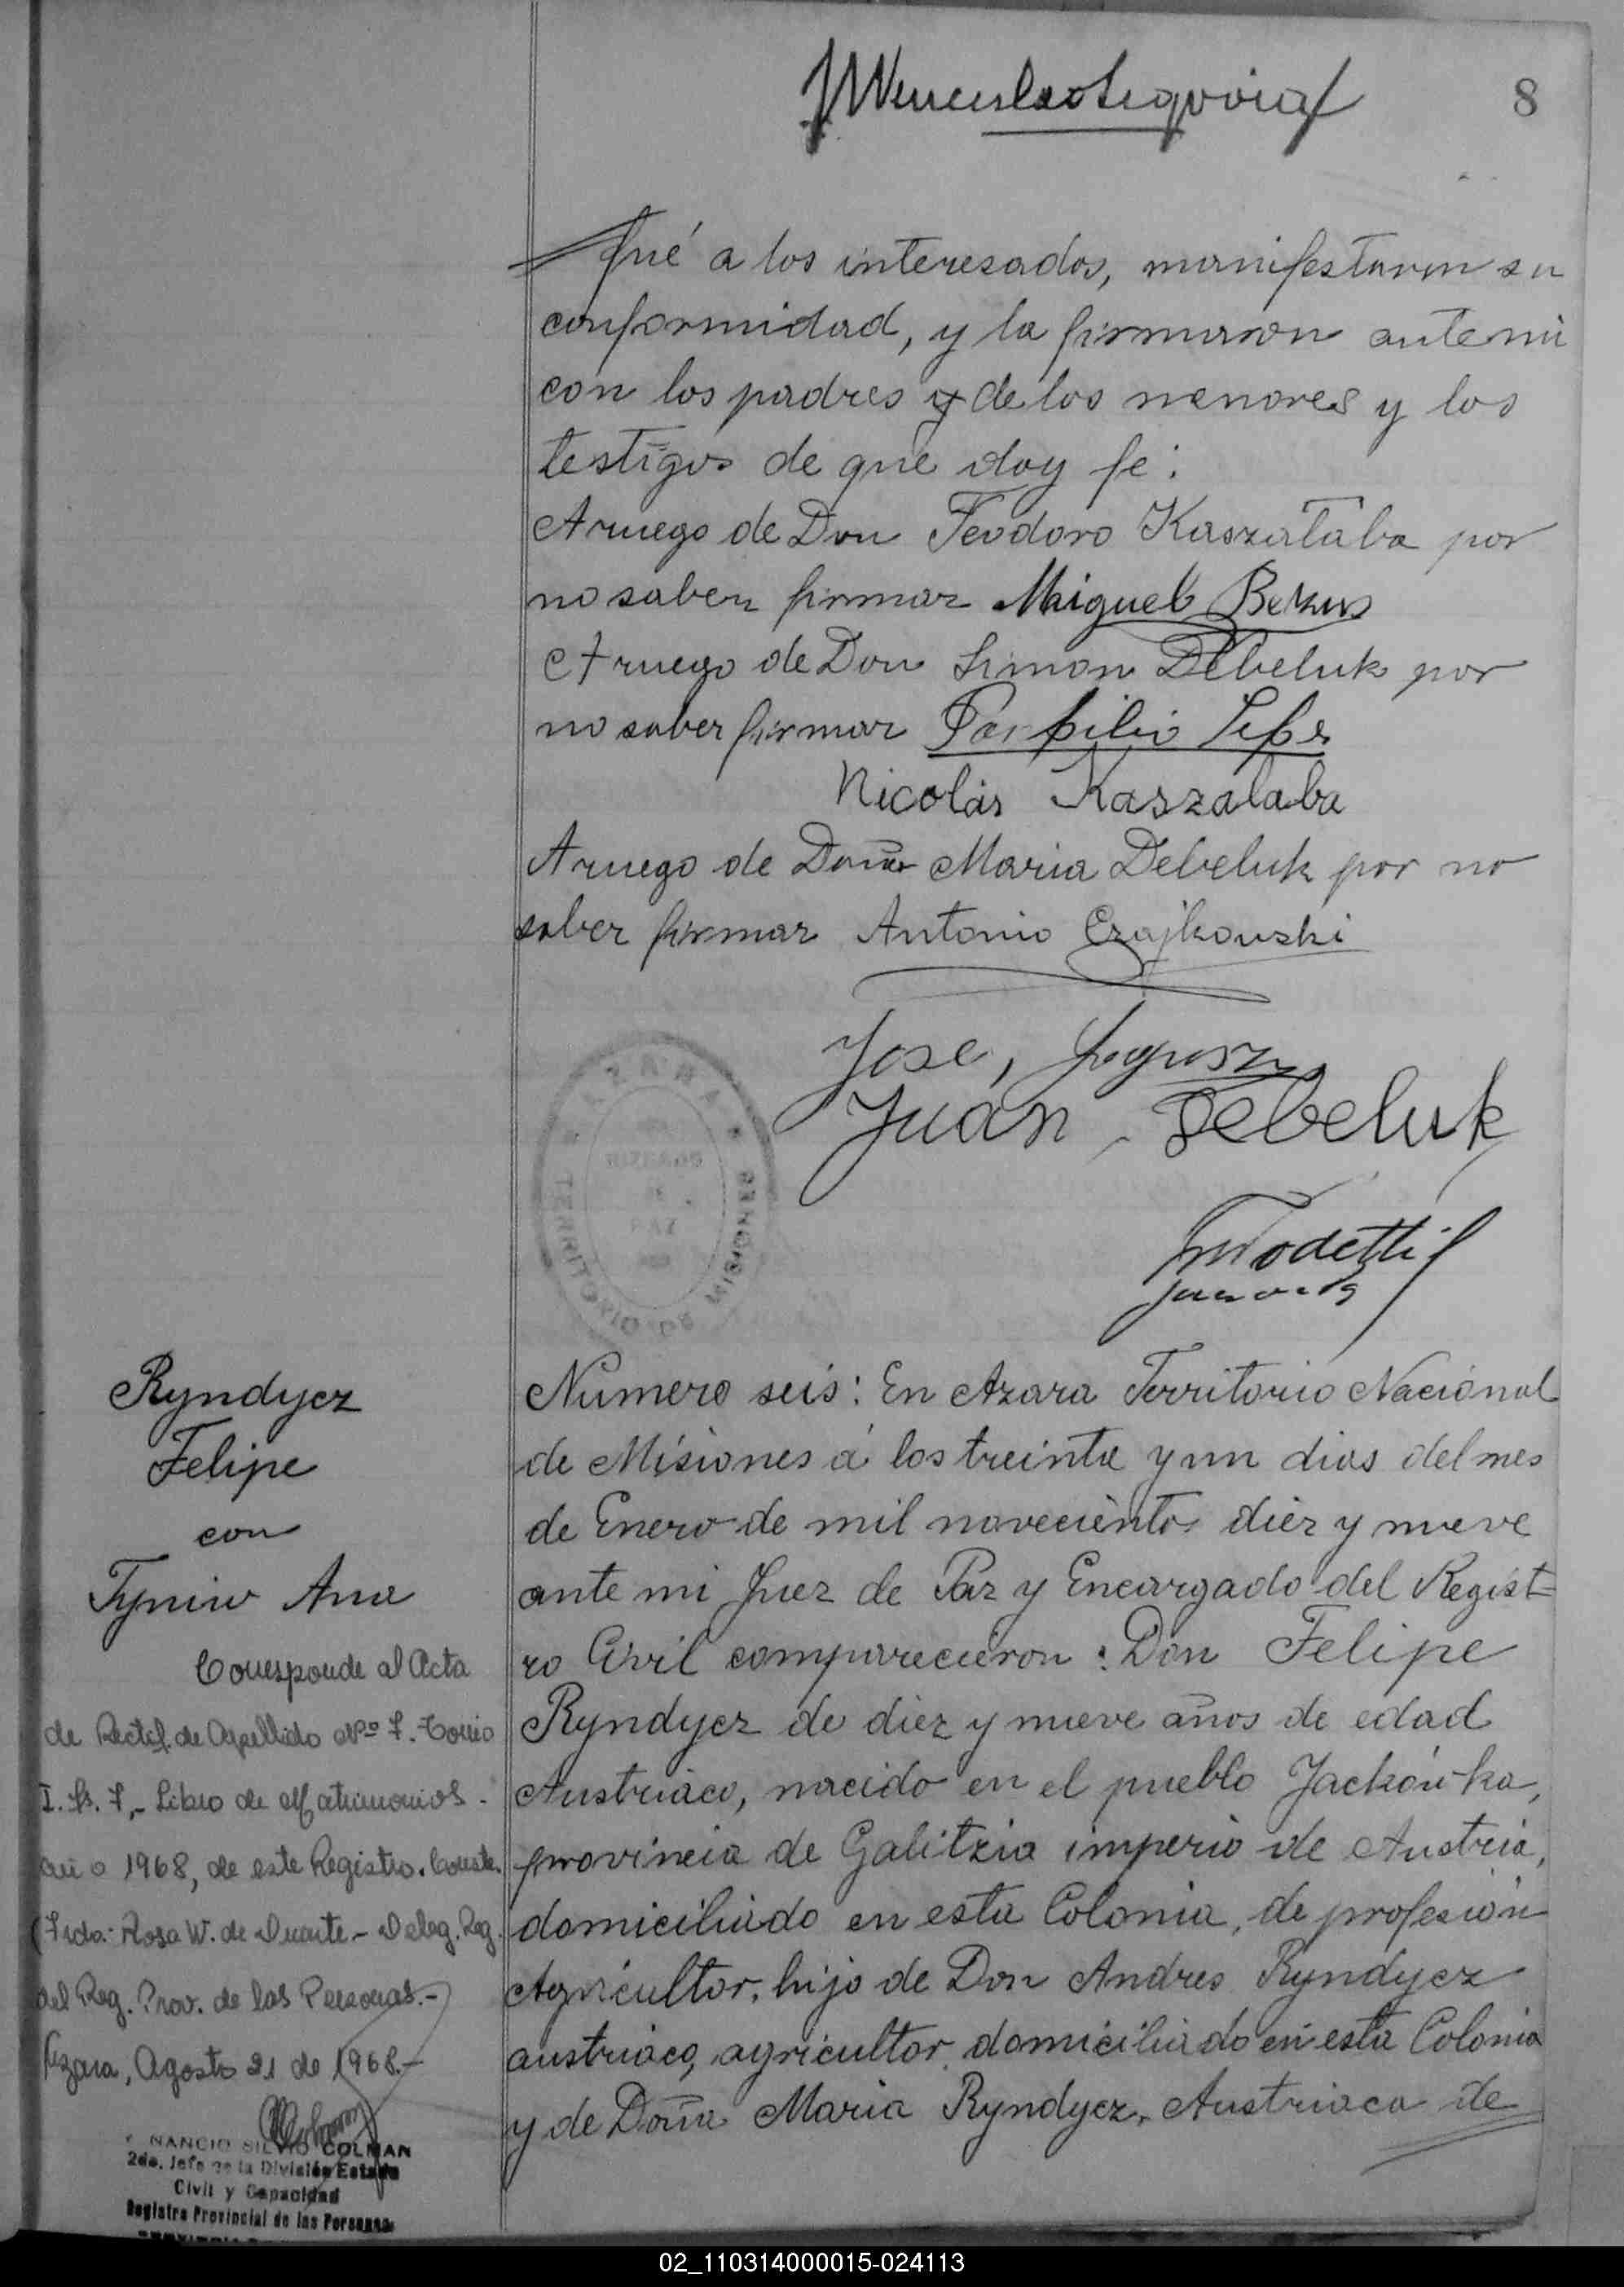 8
fué a los interesados, manifestaron su
conformidad, y la firmaron ante mi
con los padres y de los menores y los
testigos de que doy fe:
A ruego de Don Teodoro Kaszalaba por
no saber firmar Miguel
A ruego de Don Simon Debeluk por
no saber firmar
Nicolás Kaszalaba
A ruego de Doña Maria Debeluk por no
saber firmar Antonio Czajkowski
Jose,
Juan Debeluk
AZARA
PAZ
TERRITORIO DE MISIONES
Ryndycz
Felipe
con
Tyniw Ana
Corresponde al Acta
de Rectif. de Apellido Nº 7. Tomo
I. Fs. 7,- Libro de Matrimonios -
año 1968, de este Registro. Conste.
(Fdo: Rosa W. de Duarte - Deleg. Reg.
del Reg. Prov. de las Personas.-)
Azara, Agosto 21 de 1968.-
NANCIO SILVIO COLMAN
2do. Jefe de la División Estado
Civil y Capacidad
Registro Provincial de las Personas
Número seis: En Azara Territorio Nacional
de Misiones á los treinta y un dias del mes
de Enero de mil novecientos diez y nueve
ante mi Juez de Paz y Encargado del Regist=
ro Civil comparecieron: Don Felipe
Ryndycz de diez y nueve años de edad
Austriaco, nacido en el pueblo Jackówka,
provincia de Galitzia imperio de Austria,
domiciliado en esta Colonia, de profesión
Agricultor, hijo de Don Andres Ryndycz
austriaco, agricultor, domiciliado en esta Colonia
y de Doña Maria Ryndycz, Austriaca de
02_110314000015-024113